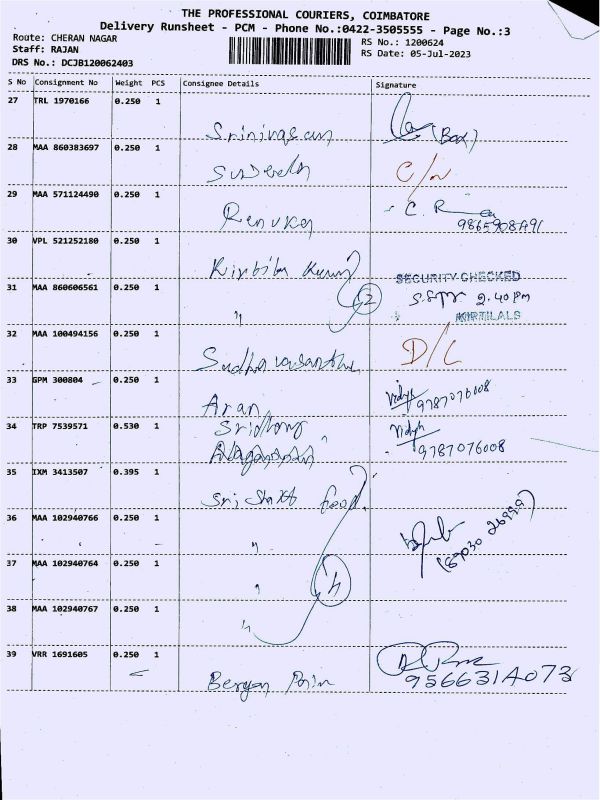 THE PROFESSIONAL COURIERS, COIMBATORE
Delivery Runsheet - PCM - Phone No.:0422-3505555 - Page No.:3
Route: CHERAN NAGAR
RS No.: 1200624
Staff: RAJAN
RS Date: 05-Jul-2023
DRS No.: DCJB120062403
S No Consignment No Weight PCS Consignee Details Signature
27 TRL 1970166 0.250 1
Srinivasan (Box)
28 MAA 860383697 0.250 1
C/N
29 MAA 571124490 0.250 1
Renuka C. R
30 VPL 521252180 0.250 1
SECURITY CHECKED
31 MAA 860606561 0.250 1
" 2 2.40 pm
KIRTILALS
32 MAA 100494156 0.250 1
Sudha vasantha D/L
33 GPM 300804 0.250 1
Aran Vidya 9787076008
34 TRP 7539571 0.530 1
Sridhong Vidya 9787076008
35 IXM 3413507 0.395 1
Sri Shakti food
36 MAA 102940766 0.250 1
"
37 MAA 102940764 0.250 1
" 4
38 MAA 102940767 0.250 1
"
39 VRR 1691605 0.250 1